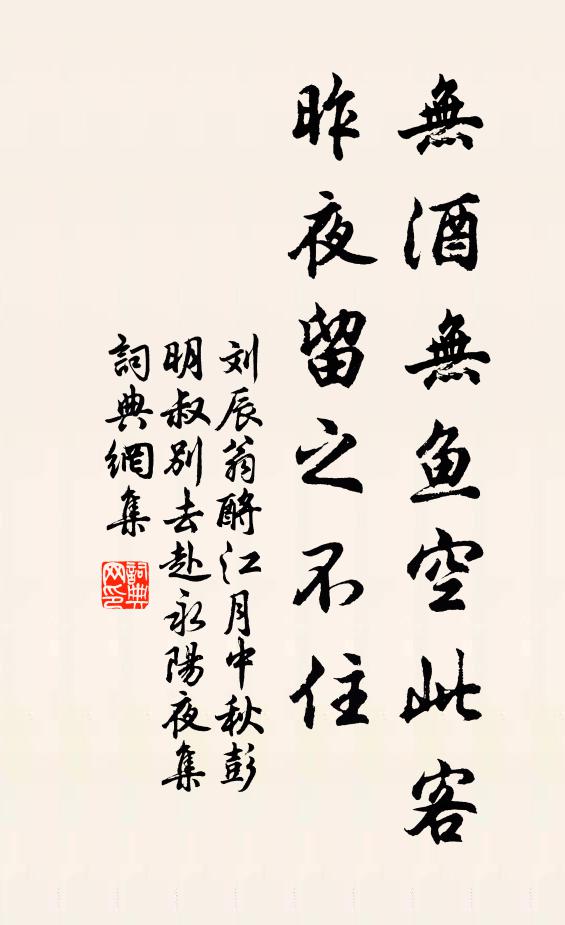 無酒無鱼空此客
昨夜留之不住
刘辰翁酹江月中秋彭
明叔别去赴永陽夜集
詞典網集
詞典
网印